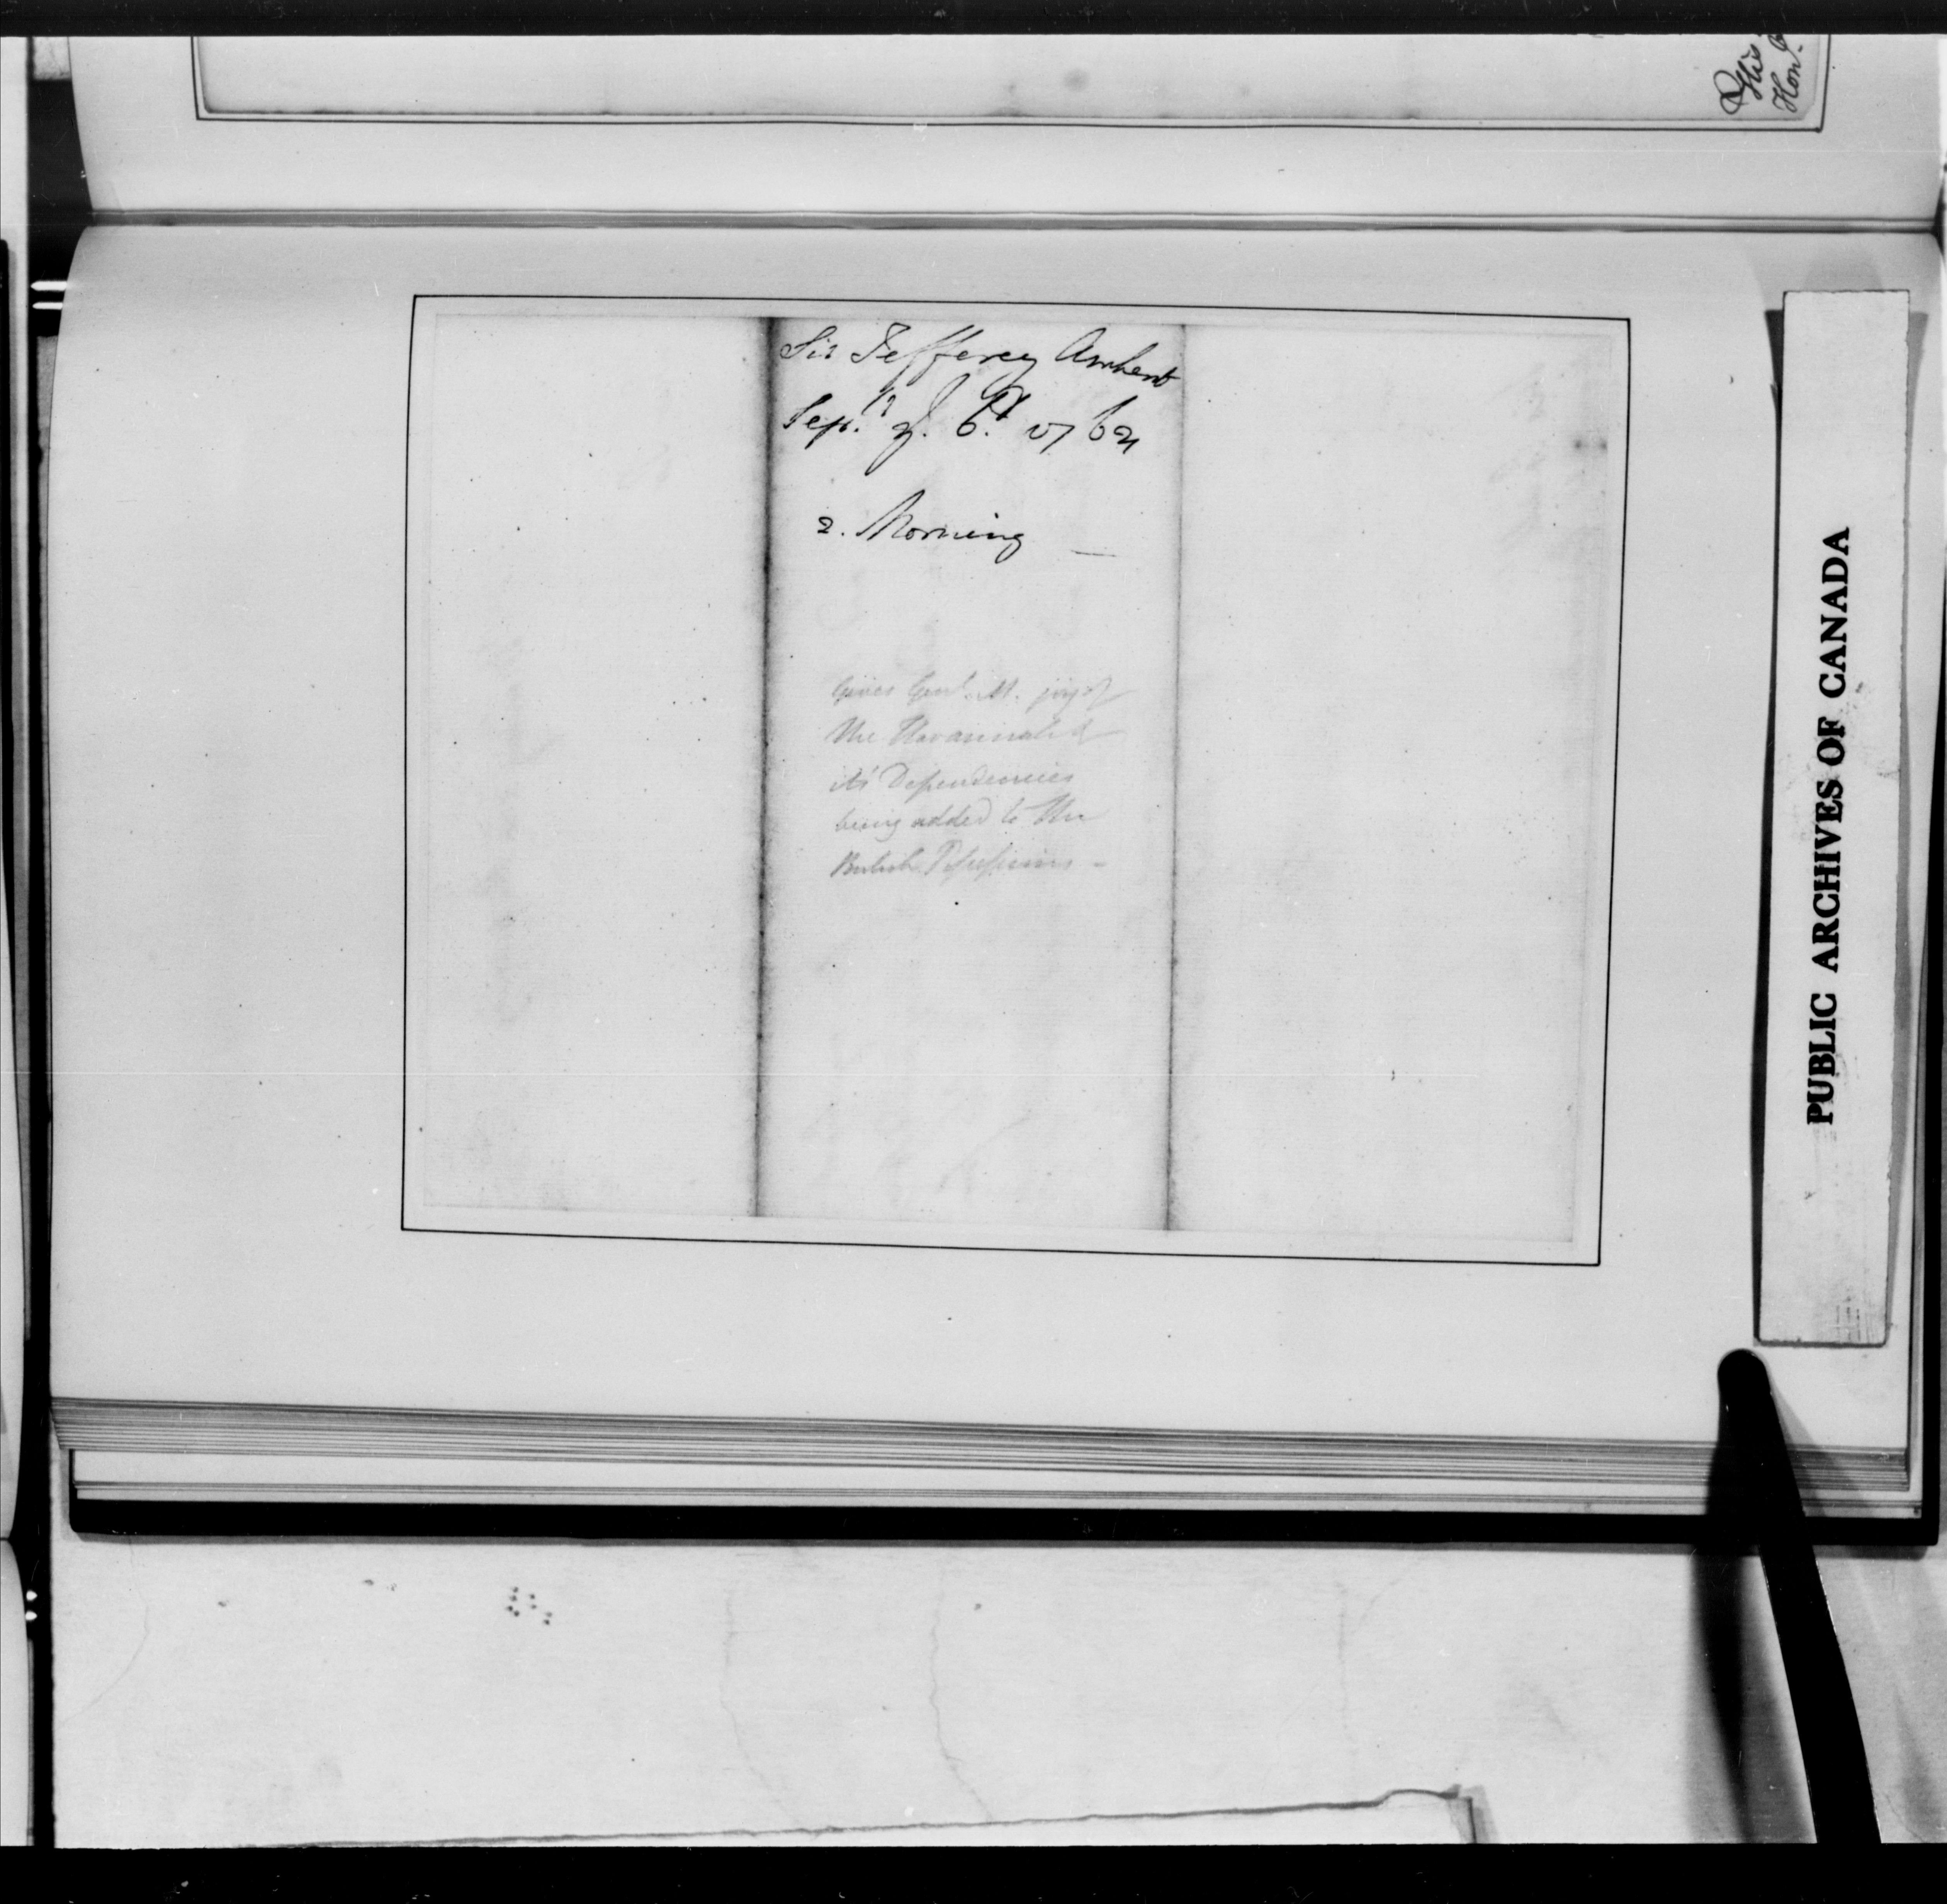 His
Hon.
Sir Jefferey Amherst
Sepr. ye. 6th 1762
2. Morning
Gives Genl. M. joy of
the Havannah &
it's Dependencies
being added to the
British Possessions -
PUBLIC ARCHIVES OF CANADA